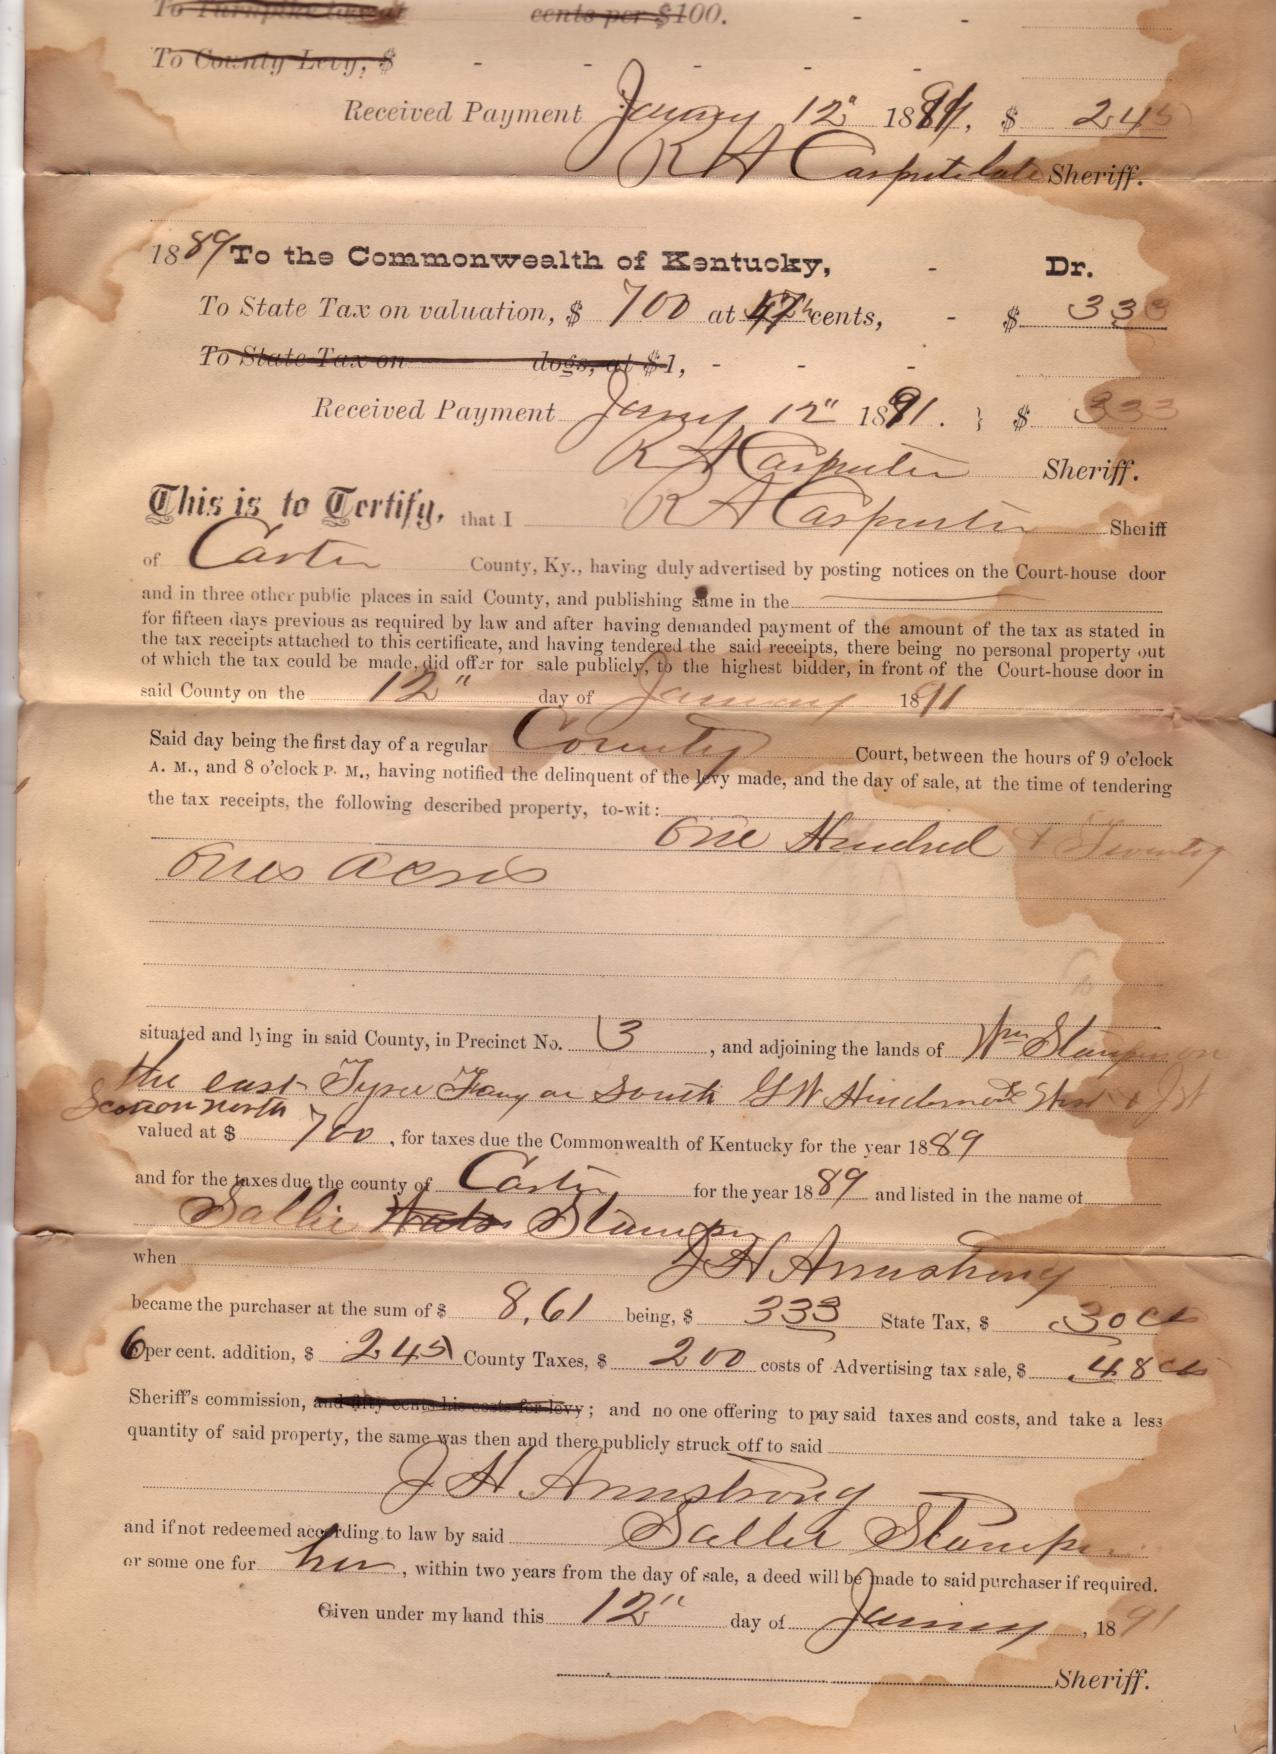 To Turnpike tax at cents per $100. - -
To County Levy, $ - - - - -
Received Payment January 12" 1891, $ 245
R A Carpenter late Sheriff.
1889 To the Commonwealth of Kentucky, - Dr.
To State Tax on valuation, $ 700 at 47½ cents, - $ 333
To State Tax on dogs, at $1, - - -
Received Payment Jany 12" 1891. } $ 333
R A Carpenter Sheriff.
This is to Certify, that I R A Carpenter Sheriff
of Carter County, Ky., having duly advertised by posting notices on the Court-house door
and in three other public places in said County, and publishing same in the
for fifteen days previous as required by law and after having demanded payment of the amount of the tax as stated in
the tax receipts attached to this certificate, and having tendered the said receipts, there being no personal property out
of which the tax could be made, did offer for sale publicly, to the highest bidder, in front of the Court-house door in
said County on the 12" day of January 1891
Said day being the first day of a regular County Court, between the hours of 9 o'clock
A. M., and 8 o'clock P. M., having notified the delinquent of the levy made, and the day of sale, at the time of tendering
the tax receipts, the following described property, to-wit:
One Hundred & Twenty
Ones acres
situated and lying in said County, in Precinct No. 3, and adjoining the lands of Wm Stamper on
the east Tyree on south G W West & J W
on north
valued at $ 700, for taxes due the Commonwealth of Kentucky for the year 1889
and for the taxes due the county of Carter for the year 1889 and listed in the name of
Sallie Stamper
when J H Armstrong
became the purchaser at the sum of $ 8,61 being, $ 333 State Tax, $ 30 cts
6 per cent. addition, $ 245 County Taxes, $ 200 costs of Advertising tax sale, $ 48 cts
Sheriff's commission, and fifty cents his costs for levy; and no one offering to pay said taxes and costs, and take a less
quantity of said property, the same was then and there publicly struck off to said
J H Armstrong
and if not redeemed according to law by said Sallie Stamper
or some one for her, within two years from the day of sale, a deed will be made to said purchaser if required.
Given under my hand this 12" day of January, 1891
Sheriff.